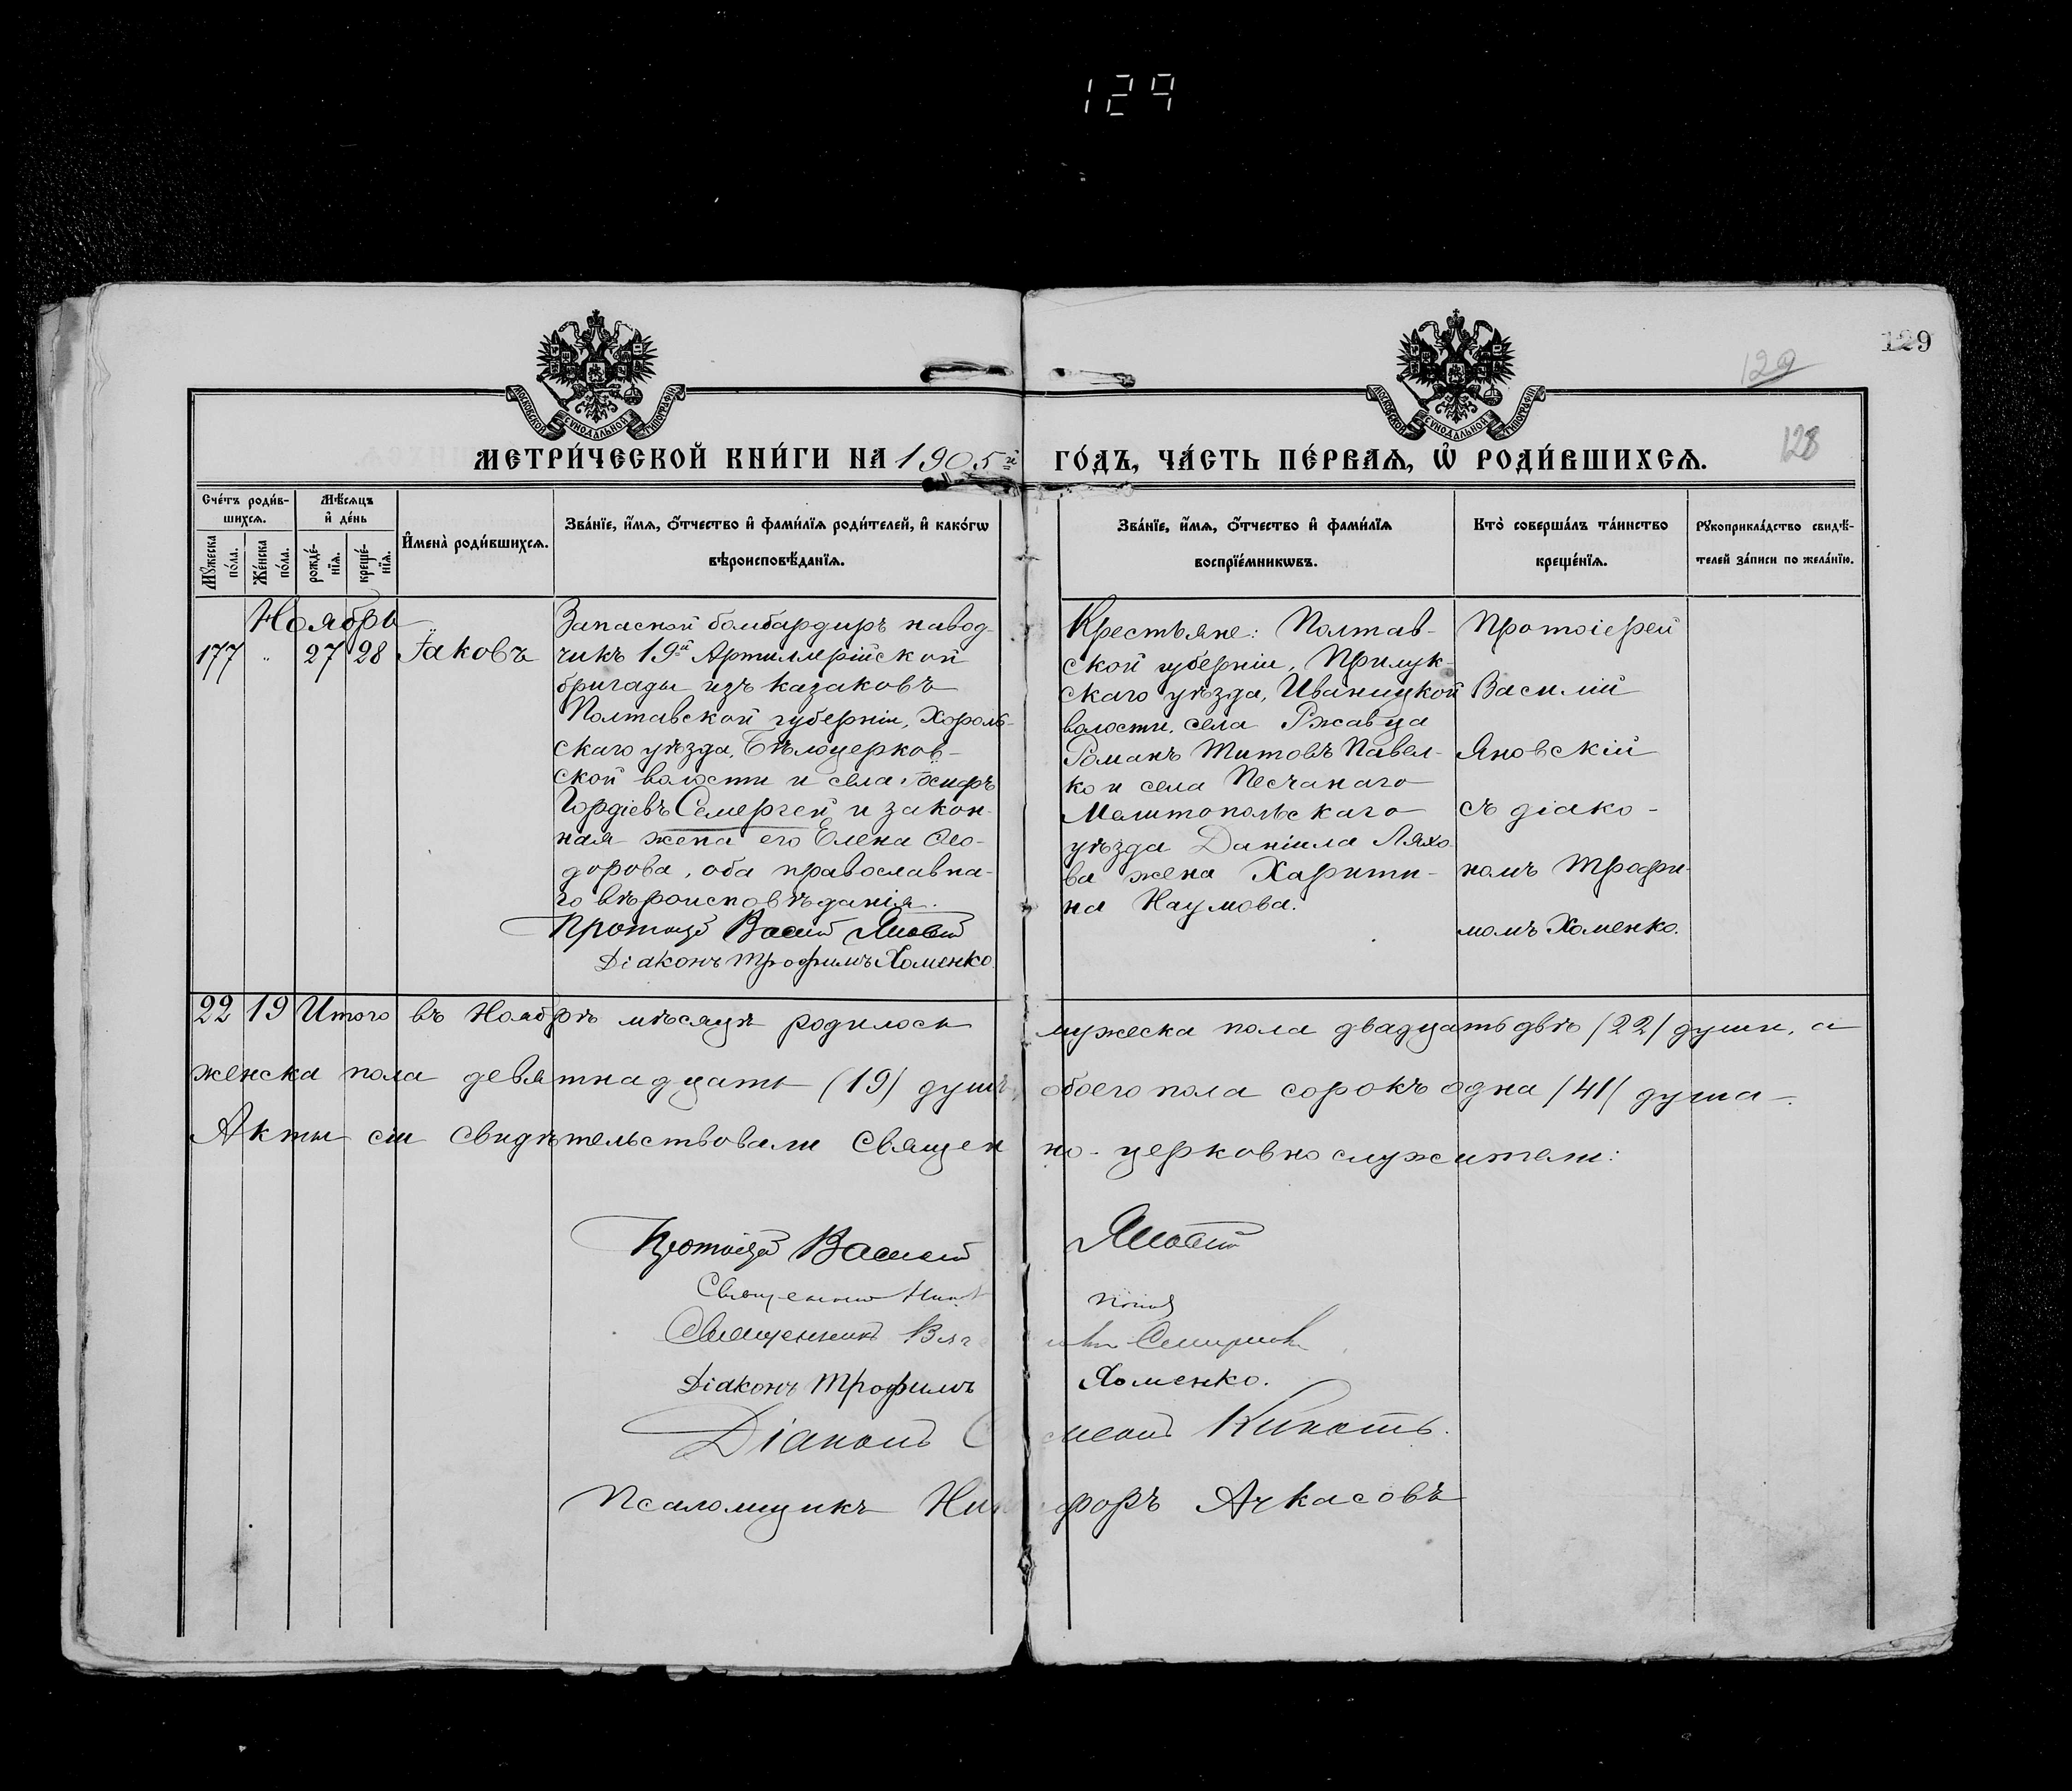 129
129
129
128
МОСКОВСКОЙ СѴНОДАЛЬНОЙ ТИПОГРАФІИ
МОСКОВСКОЙ СѴНОДАЛЬНОЙ ТИПОГРАФІИ
МЕТРИ́ЧЕСКОЙ КНИ́ГИ НА 1905й ГО́ДЪ, ЧА́СТЬ ПЕ́РВАѦ, Ѡ҆ РОДИ́ВШИХСѦ.
Сче́тъ роди́в-
шихсѧ.
Мѣ́сѧцъ
и҆ де́нь
Мꙋ́жеска по́ла.
Же́нска по́ла.
рожде́-
нїѧ.
креще́-
нїѧ.
И҆мена̀ роди́вшихсѧ.
Зва́нїе, и҆́мѧ, ѻ҆́тчество и҆ фами́лїѧ роди́телей, и҆ како́гѡ
вѣроисповѣ́данїѧ.
Зва́нїе, и҆́мѧ, ѻ҆́тчество и҆ фами́лїѧ
воспрїе́мникѡвъ.
Кто̀ соверша́лъ та́инство
креще́нїѧ.
Рꙋкоприкла́дство свидѣ́-
телей за́писи по жела́нїю.
Ноябрь
177 " 27 28 Іаковъ
Запасной бомбардиръ навод-
чикъ 19й Артиллерійской
бригады изъ казаковъ
Полтавской губерніи, Хороль-
скаго уѣзда, Бѣлоцерков-
ской волости и села Іосифъ
Гордіевъ Семергей и закон-
ная жена его Елена Ѳео-
дорова, оба православна-
го вѣроисповѣданія.
Протоіерей Василій Яновскій
Діаконъ Трофимъ Хоменко.
Крестьяне: Полтав-
ской губерніи, Прилук-
скаго уѣзда, Иваницкой
волости, села Ржавца
Романъ Титовъ Павел-
ко и села Песчанаго
Мелитопольскаго
уѣзда Даніила Ляхо-
ва жена Харити-
на Наумова.
Протоіерей
Василій
Яновскій
съ діако-
номъ Трофи-
момъ Хоменко.
22 19 Итого въ Ноябрѣ мѣсяцѣ родилось мужеска пола двадцать двѣ /22/ души, а
женска пола девятнадцать (19) душъ, обоего пола сорокъ одна /41/ душа.
Акты сіи свидѣтельствовали священно-церковно служители:
Протоіерей Василій Яновскій
Священникъ
Священникъ Смирновъ
Діаконъ Трофимъ Хоменко.
Діаконъ Симеонъ Кикоть.
Псаломщикъ Никифоръ Ачкасовъ